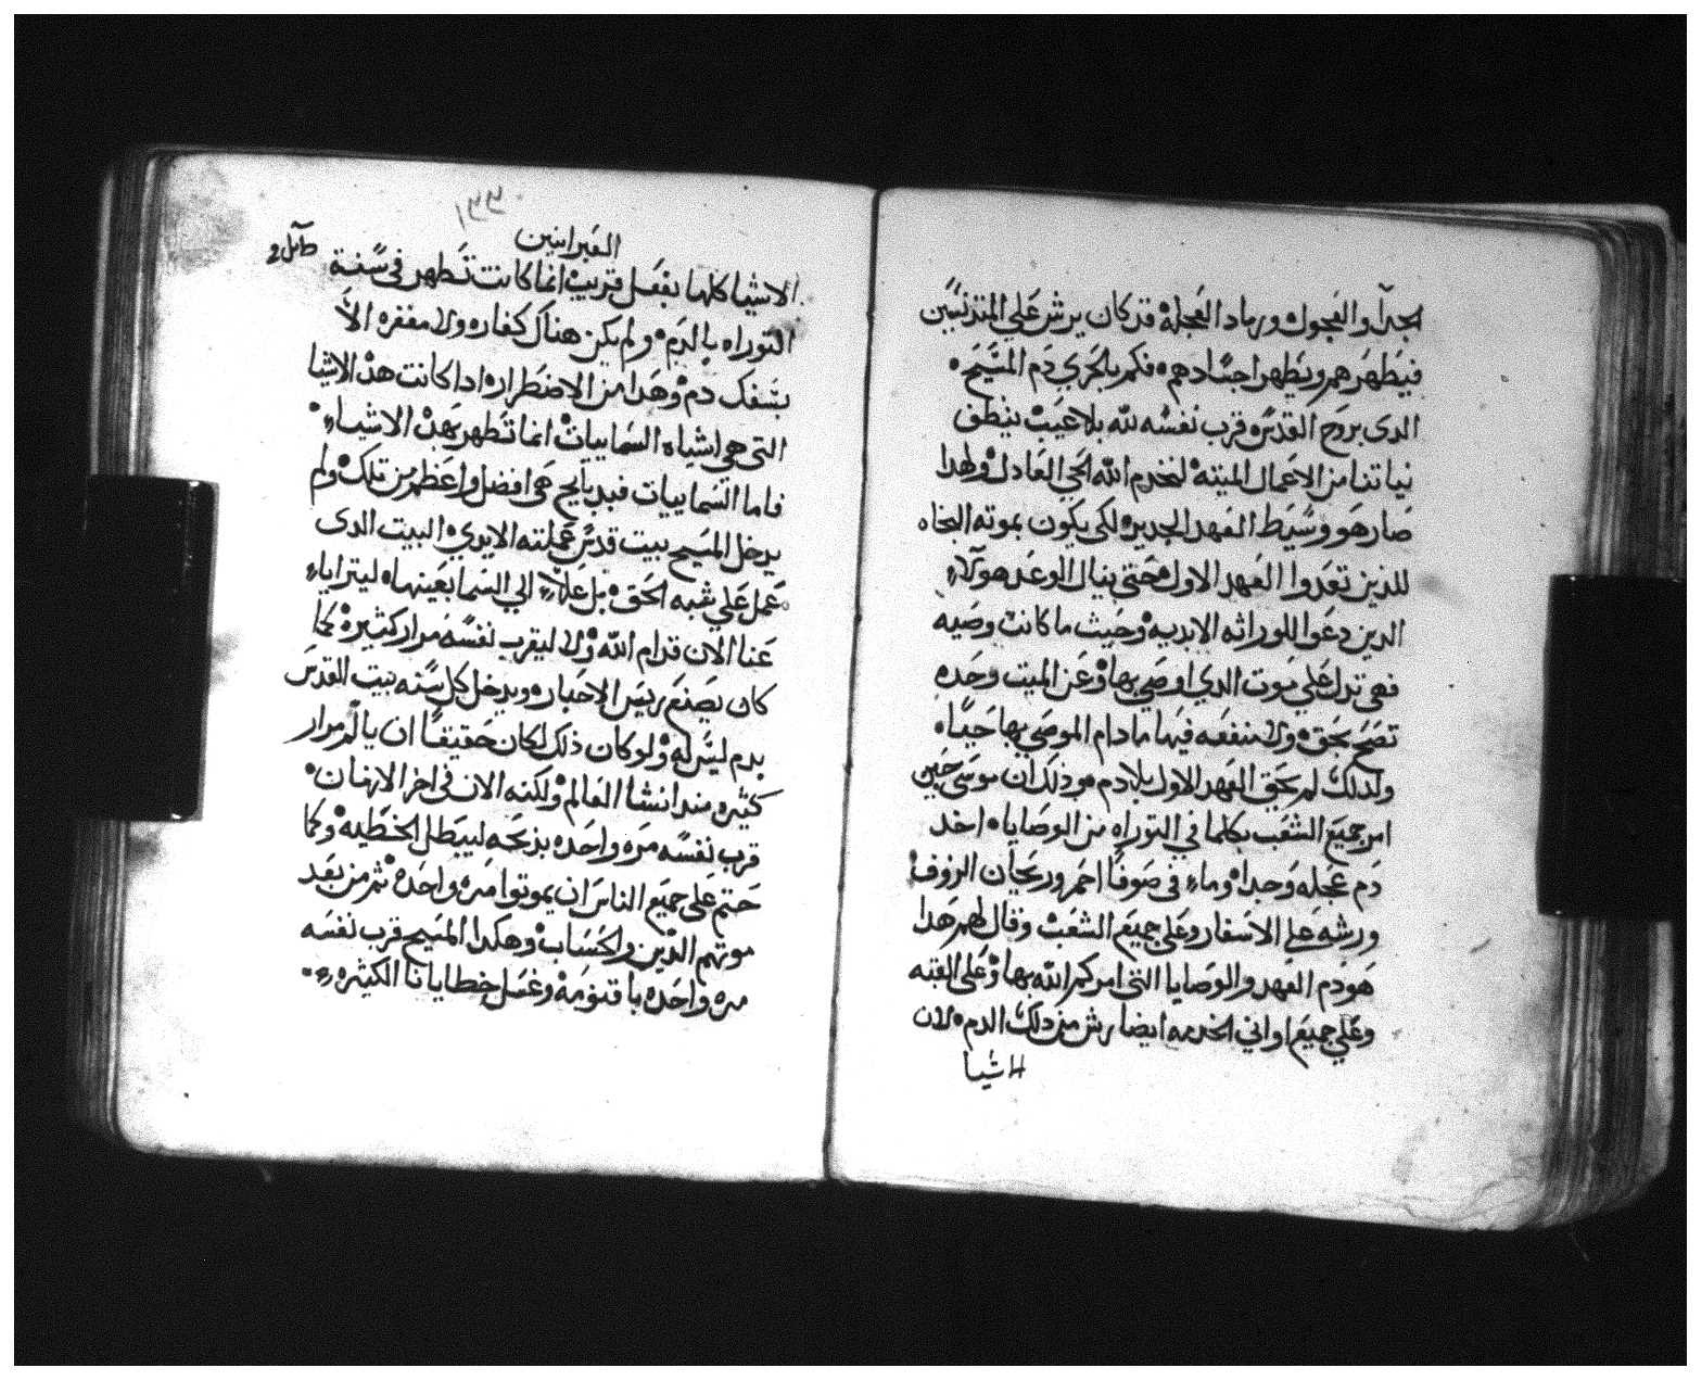 الجدآ والعجول ورماد العجلة قد كان يرش علي المتدنسين
فيطهرهم ويطهر اجسادهم فكم بالحري دم المسيح
الدى بروح القدس قرب نفسه لله بلا عيب ينظف
نياتنا من الاعمال الميتة لنخدم الله الحي العادل ولهدا
صار هو وسيط العهد الجديد لكى يكون بموته النجاه
للذين تعدوا العهد الاول حتى ينال الوعد هولآء
الدين دعوا للوراثه الابديه وحيث ما كانت وصيه
فهى تدل علي موت الدي اوصي بها وعن الميت وحده
تصح بحق ولا منفعه فيها مادام الموصي بها حيا
ولدلك لم يحق العهد الاول بلا دم وذلك ان موسى حين
امر جميع الشعب بكلما في التوراه من الوصايا اخد
دم عجله وجدا وماء فى صوفا احمر وريحان الزوف
ورشه على الاسفار وعلى جميع الشعب وقال لهم هدا
هو دم العهد والوصايا التى امركم الله بها وعلى القبه
وعلي جميع اواني الخدمه ايضا رش من دلك الدم لان
الاشيا
العبرانيين
الاشيا كلها بفعل قريب انما كانت تطهر فى سنة
التوراه بالدم ولم يكن هناك كفاره ولا مغفره الا
بسفك دم وهدا من الاضطرار ادا كانت هده الاشيا
التى هي اشباه السماييات انما تطهر بهده الاشياء
فاما السماييات فبدبايح هى افضل واعظم من تلك ولم
يدخل المسيح بيت قدس عملته الايدي البيت الدى
عمل علي شبه الحق بل علاء الي السما بعينها ليترايا
عنا الان قدام الله ولا ليقرب نفسه مرار كثيره كما
كان يصنع ريس الاحبار ويدخل كل سنه بيت القدس
بدم ليس له ولو كان ذلك لكان حقيقا ان يالم مرار
كثيره مند انشا العالم ولكنه الان فى اخر الازمان
قرب نفسه مره واحده بذبحه ليبطل الخطيه وكما
حتم على جميع الناس ان يموتوا مره واحده ثم من بعد
موتهم الدين والحساب وهكدا المسيح قرب نفسه
مره واحده باقنومه وغسل خطايانا الكثيره